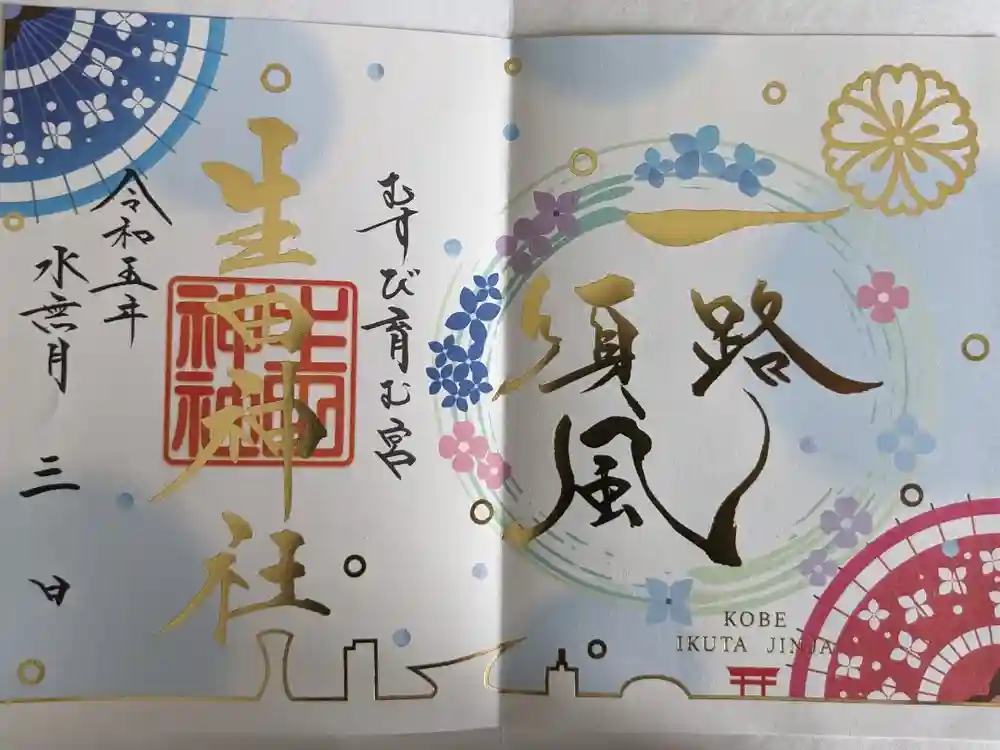 一路順風
KOBE
IKUTA JINJA
むすび育む宮
生田神社
生田神社
令和五年
水無月三日